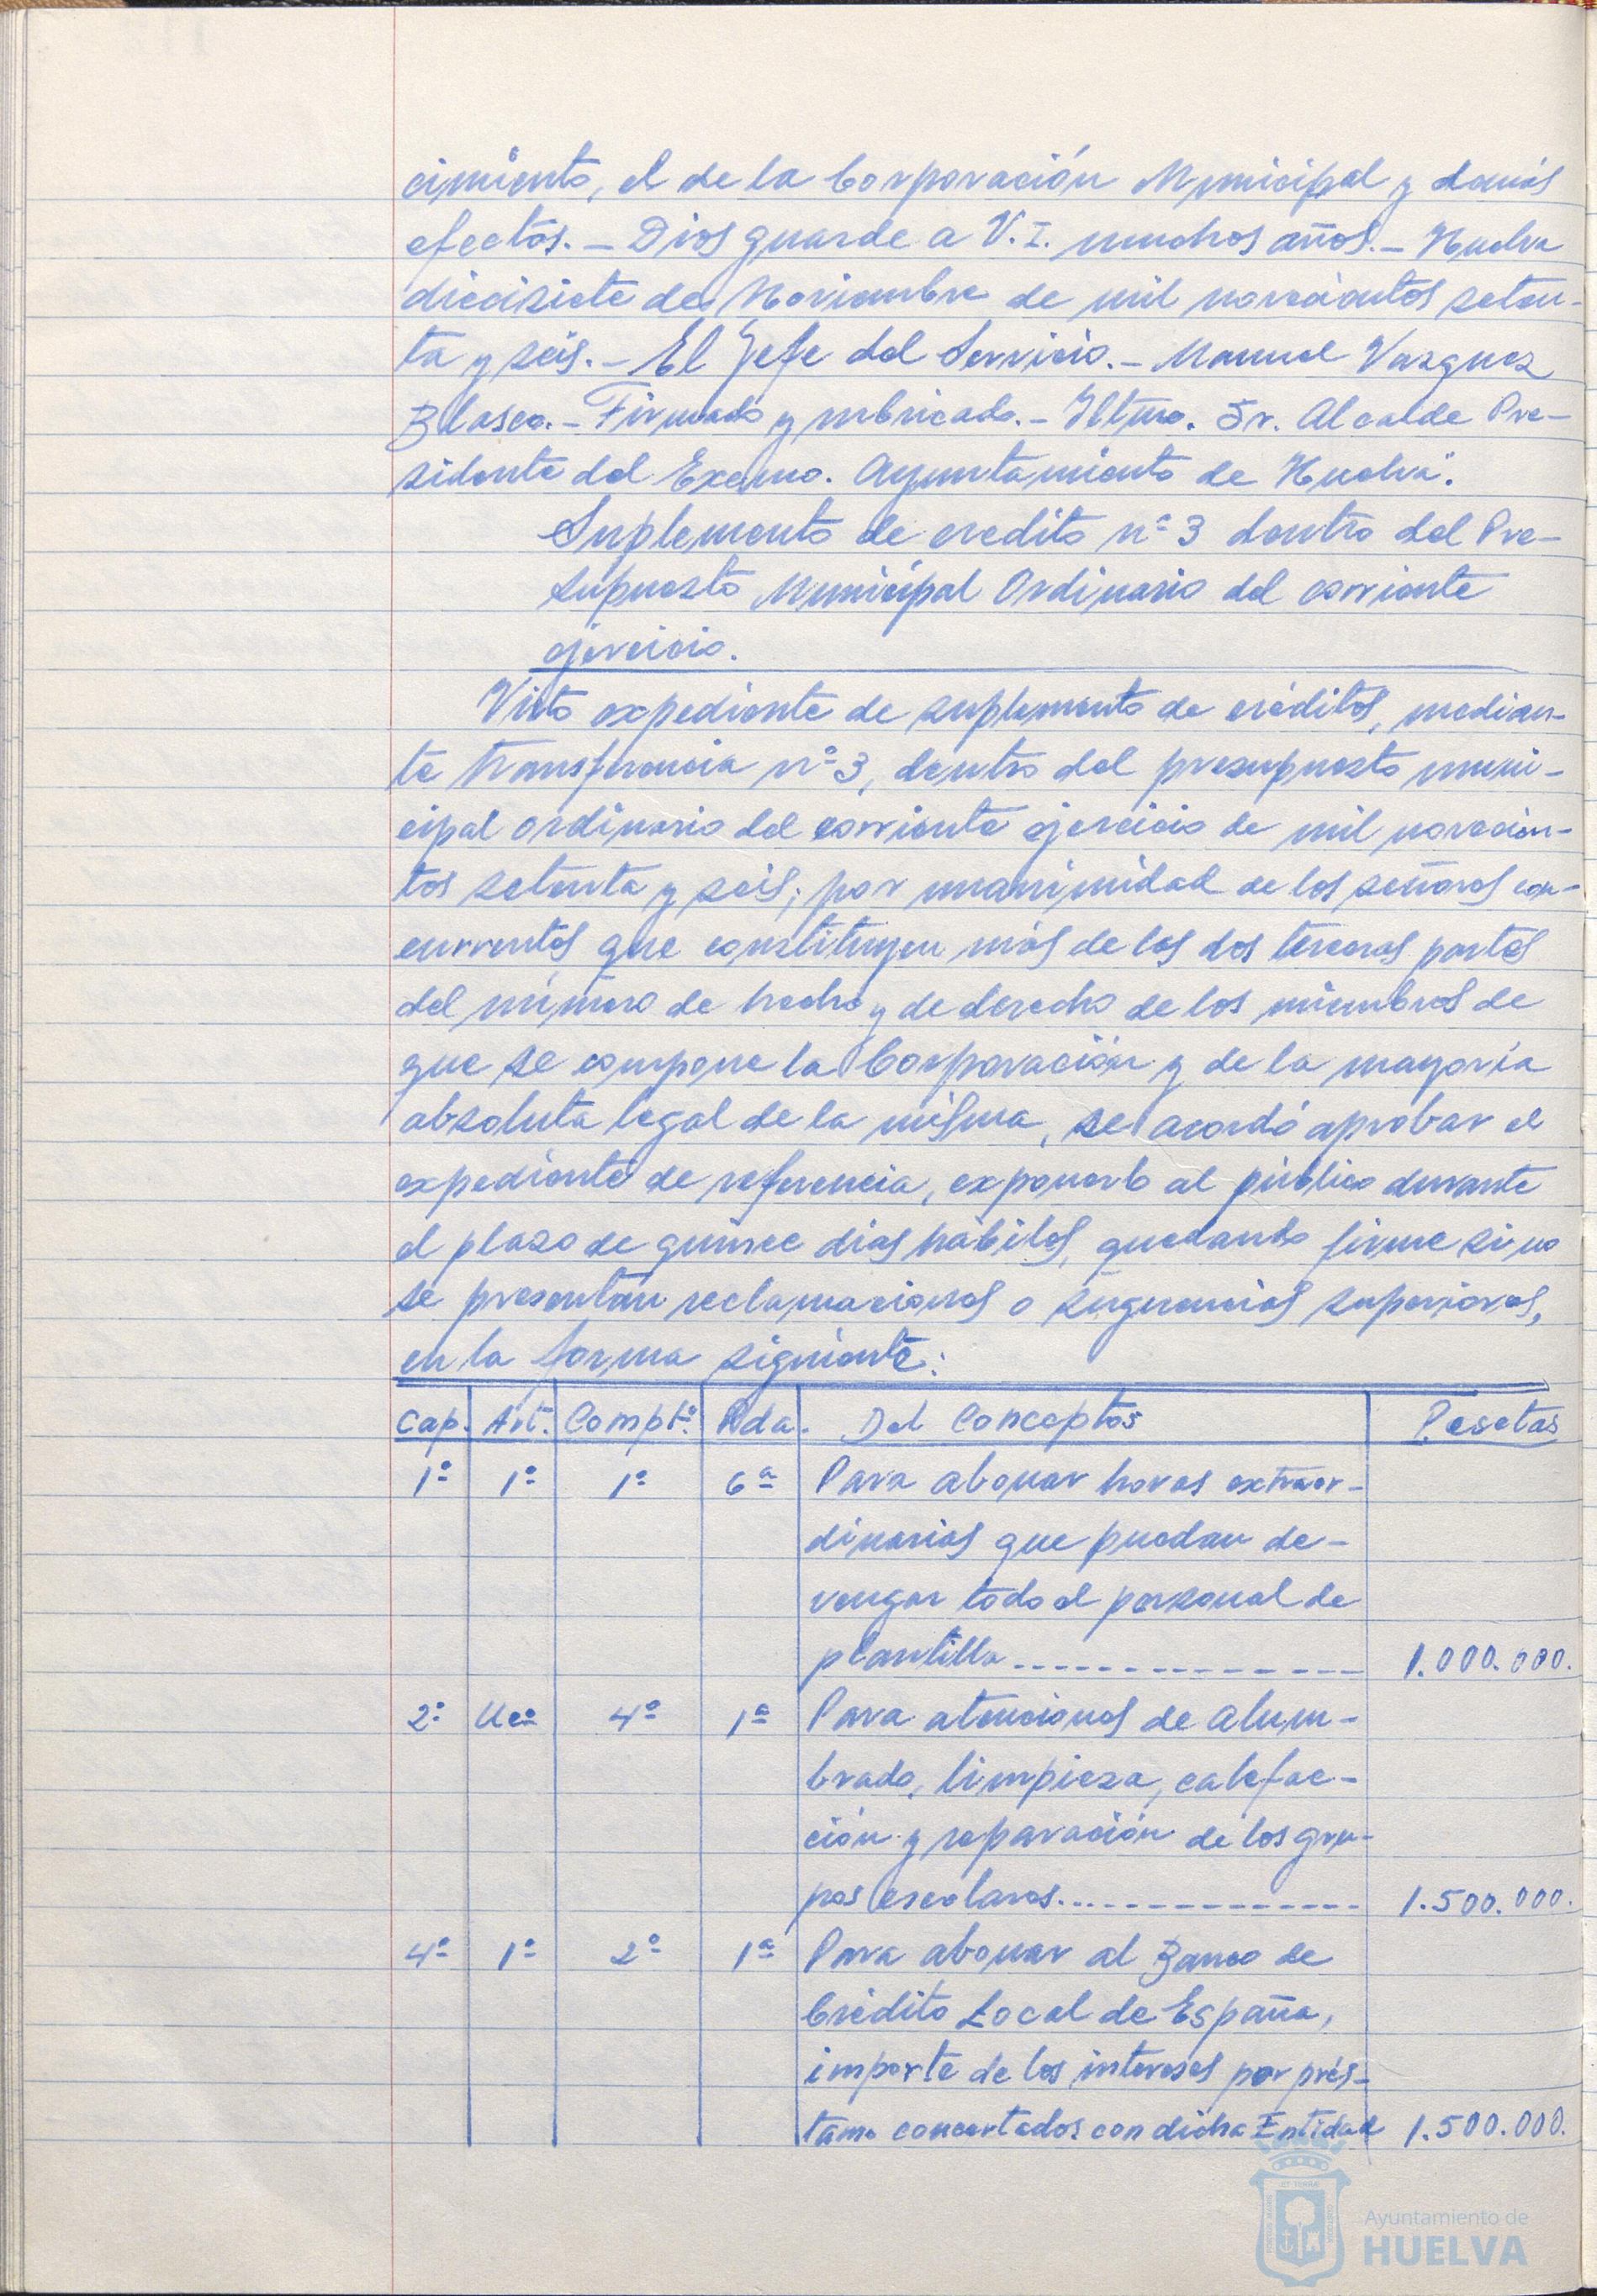 cimiento, el de la Corporación Municipal y demás
efectos.- Dios guarde a V.I. muchos años.- Huelva
diecisiete de Noviembre de mil novecientos seten-
ta y seis.- El Jefe del Servicio.- Manuel Vazquez
Blasco.- Firmado y rubricado.- Iltmo. Sr. Alcalde Pre-
sidente del Excmo. Ayuntamiento de Huelva".
Suplemento de credito nº 3 dentro del Pre-
supuesto Municipal Ordinario del corriente
ejercicio.
Visto expediente de suplemento de créditos, median-
te transferencia nº 3, dentro del presupuesto muni-
cipal ordinario del corriente ejercicio de mil novecien-
tos setenta y seis; por unanimidad de los señores con-
currentes que constituyen más de las dos terceras partes
del número de hecho y de derecho de los miembros de
que se compone la Corporación y de la mayoría
absoluta legal de la misma, se acordó aprobar el
expediente de referencia, exponerlo al público durante
el plazo de quince dias hábiles, quedando firme si no
se presentan reclamaciones o sugerencias superiores,
en la forma siguiente:
Cap. Art. Comptº. Pda. Del Conceptos Pesetas
1º 1º 1º 6ª Para abonar horas extraor-
dinarias que puedan de-
vengar todo el personal de
plantilla 1.000.000.
2º Uco 4º 1ª Para atenciones de alum-
brado, limpieza, calefac-
ción y reparación de los gru-
pos escolares 1.500.000.
4º 1º 2º 1ª Para abonar al Banco de
Crédito Local de España,
importe de los intereses por prés-
tamo concertados con dicha Entidad 1.500.000.
Ayuntamiento de
HUELVA